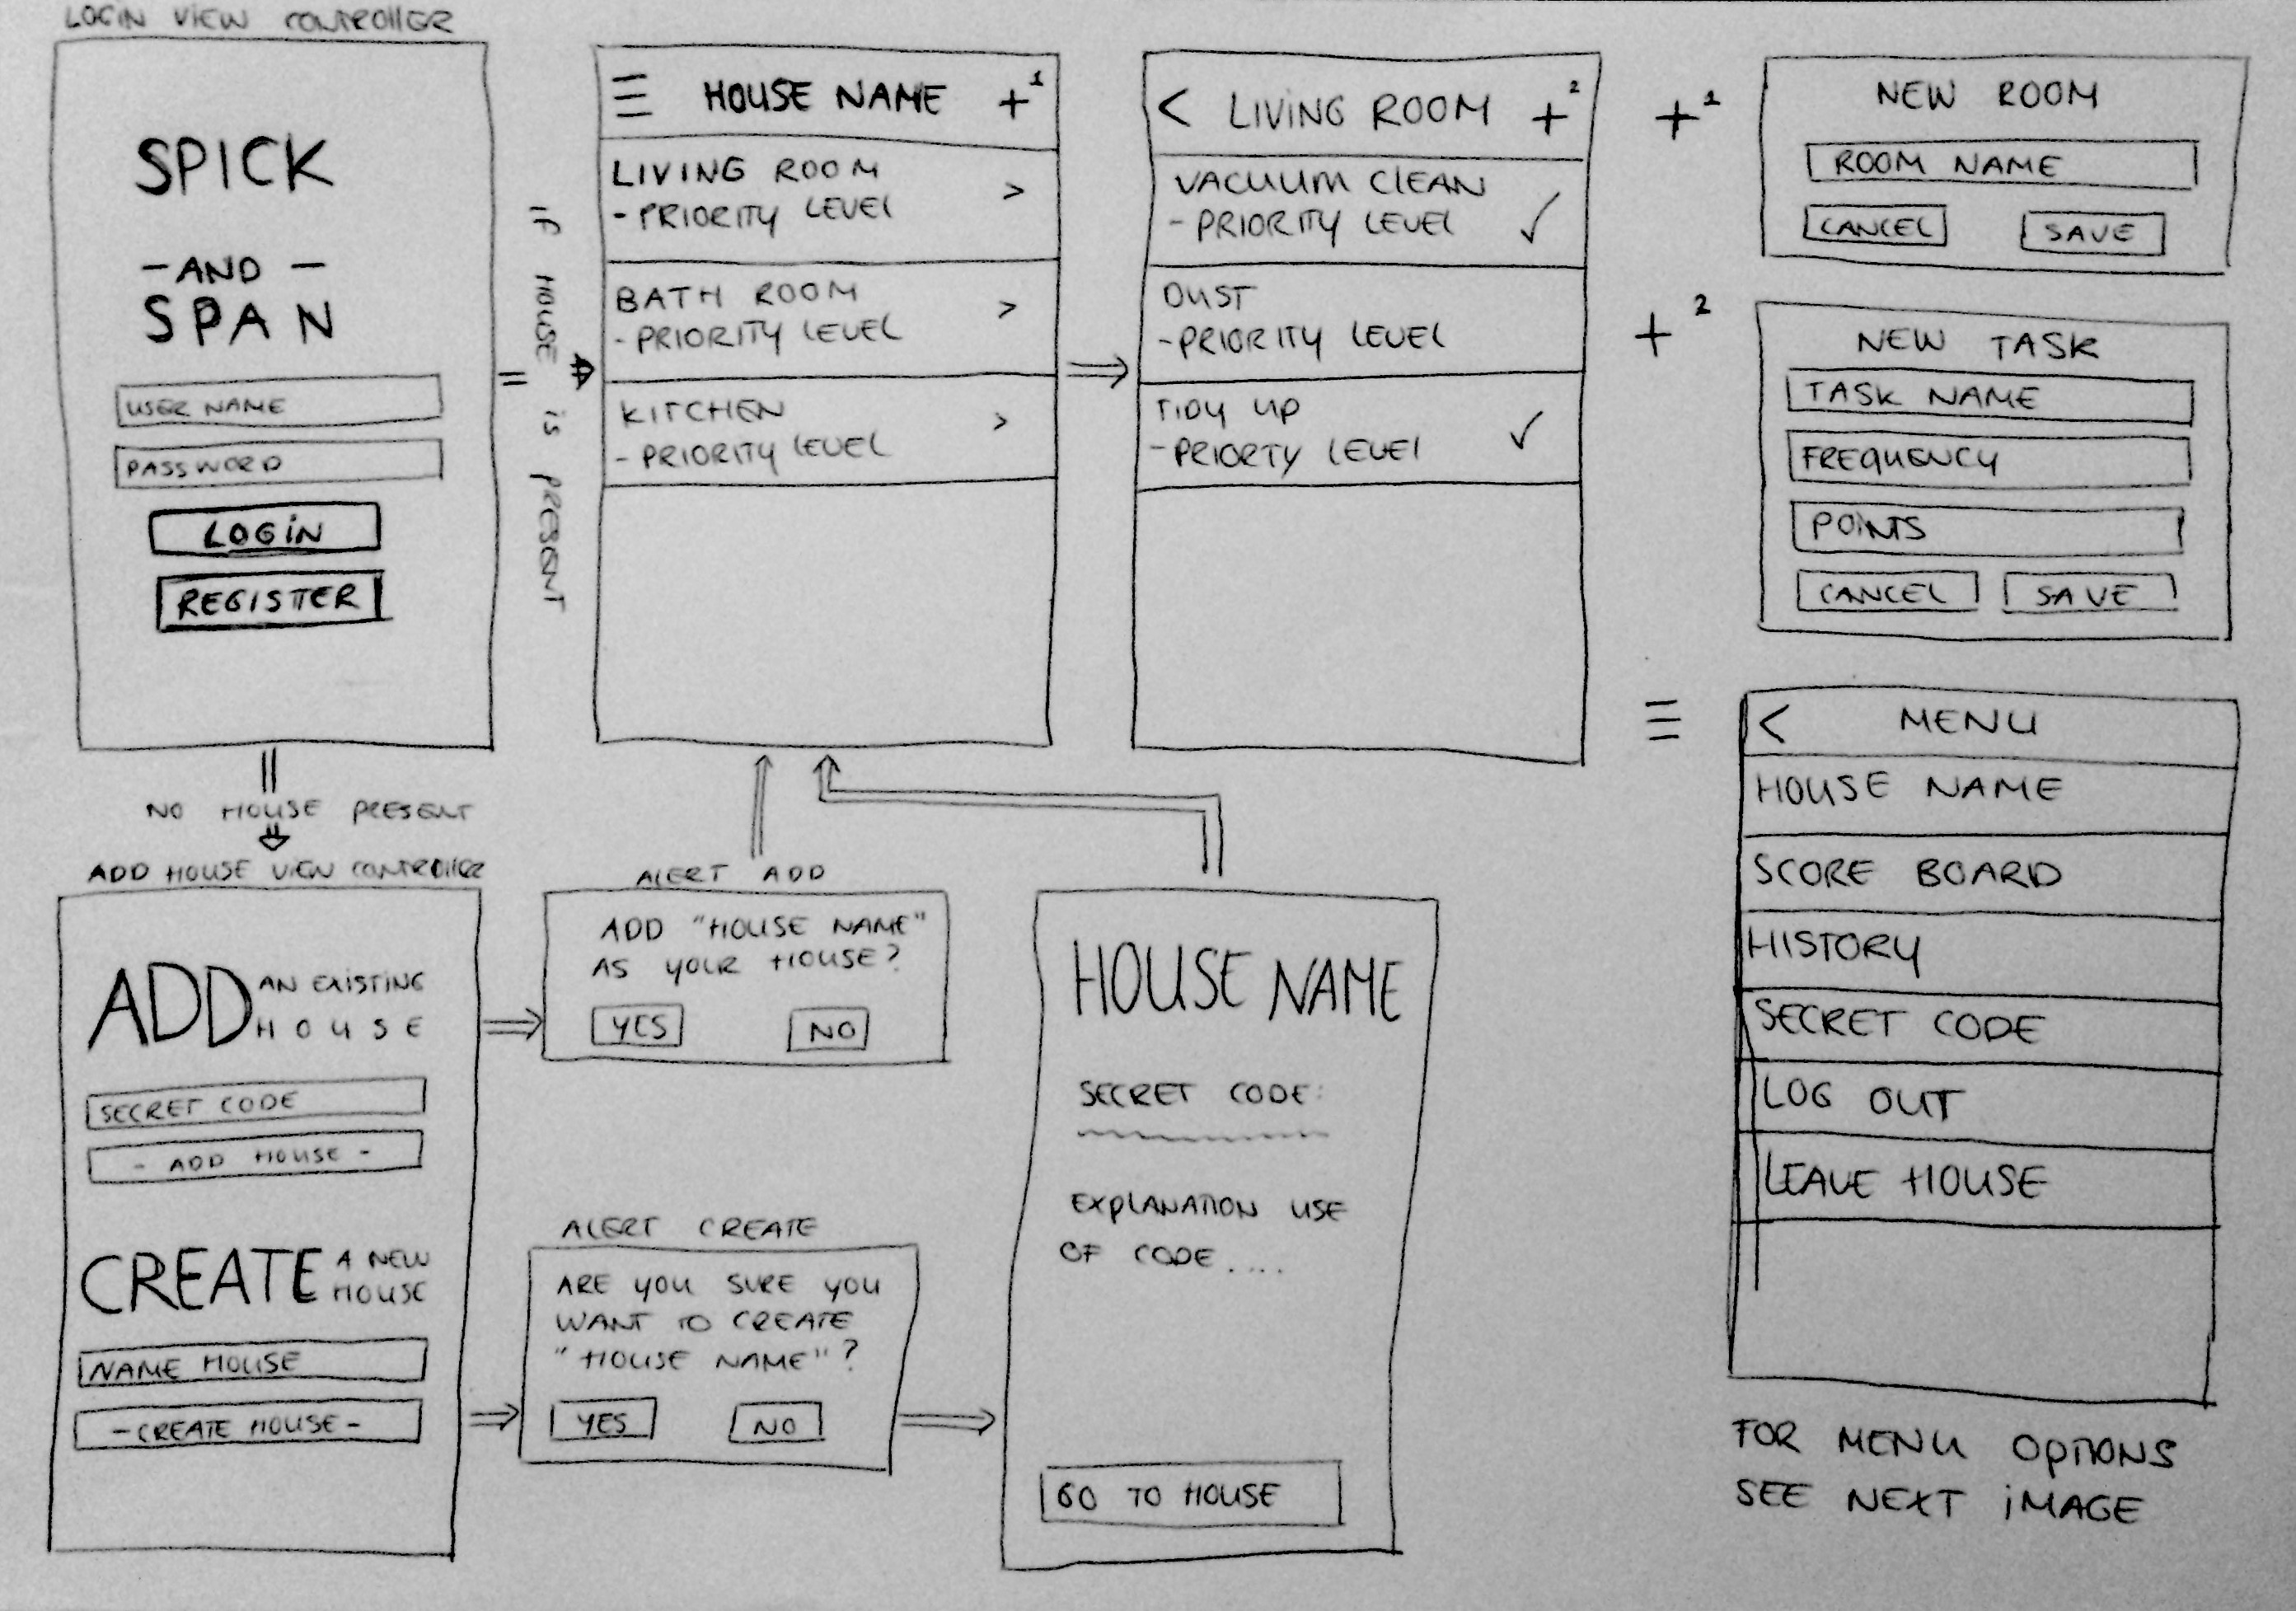 LOGIN VIEW CONTROllER
SPICK
- AND -
SPAN
USER NAME
PASSWORD
LOGiN
REGISTER
IF HOUSE is PRESENT
NO HOUSE PRESENT
☰ HOUSE NAME +¹
LIVING ROOM >
- PRIORITY LEVEL
BATH ROOM >
- PRIORITY LEVEL
KITCHEN >
- PRIORITY LEVEL
< LIViNG ROOM +²
VACUUM ClEAN
- PRIORITY LEVEL ✓
DUST
- PRIORITY LEVEL
TIDY UP
- PRIORTY LEVEL ✓
+¹
NEW ROOM
ROOM NAME
CANCEL SAVE
+²
NEW TASK
TASK NAME
FREQUENCY
POINTS
CANCEL SAVE
☰
< MENU
HOUSE NAME
SCORE BOARD
HISTORY
SECRET CODE
LOG OUT
LEAVE HOUSE
FOR MENU OPTIONS
SEE NEXT iMAGE
ADD HOUSE VIEW CONTROllER
ADD AN EXiSTING
HOUSE
SECRET CODE
- ADD HOUSE -
CREATE A NEW
HOUSE
NAME HOUSE
- CREATE HOUSE -
ALERT ADD
ADD "HOUSE NAME"
AS YOUR HOUSE?
YES NO
ALERT CREATE
ARE YOU SURE YOU
WANT TO CREATE
"HOUSE NAME"?
YES NO
HOUSE NAME
SECRET CODE:
EXPLANATION USE
OF CODE ....
GO TO HOUSE